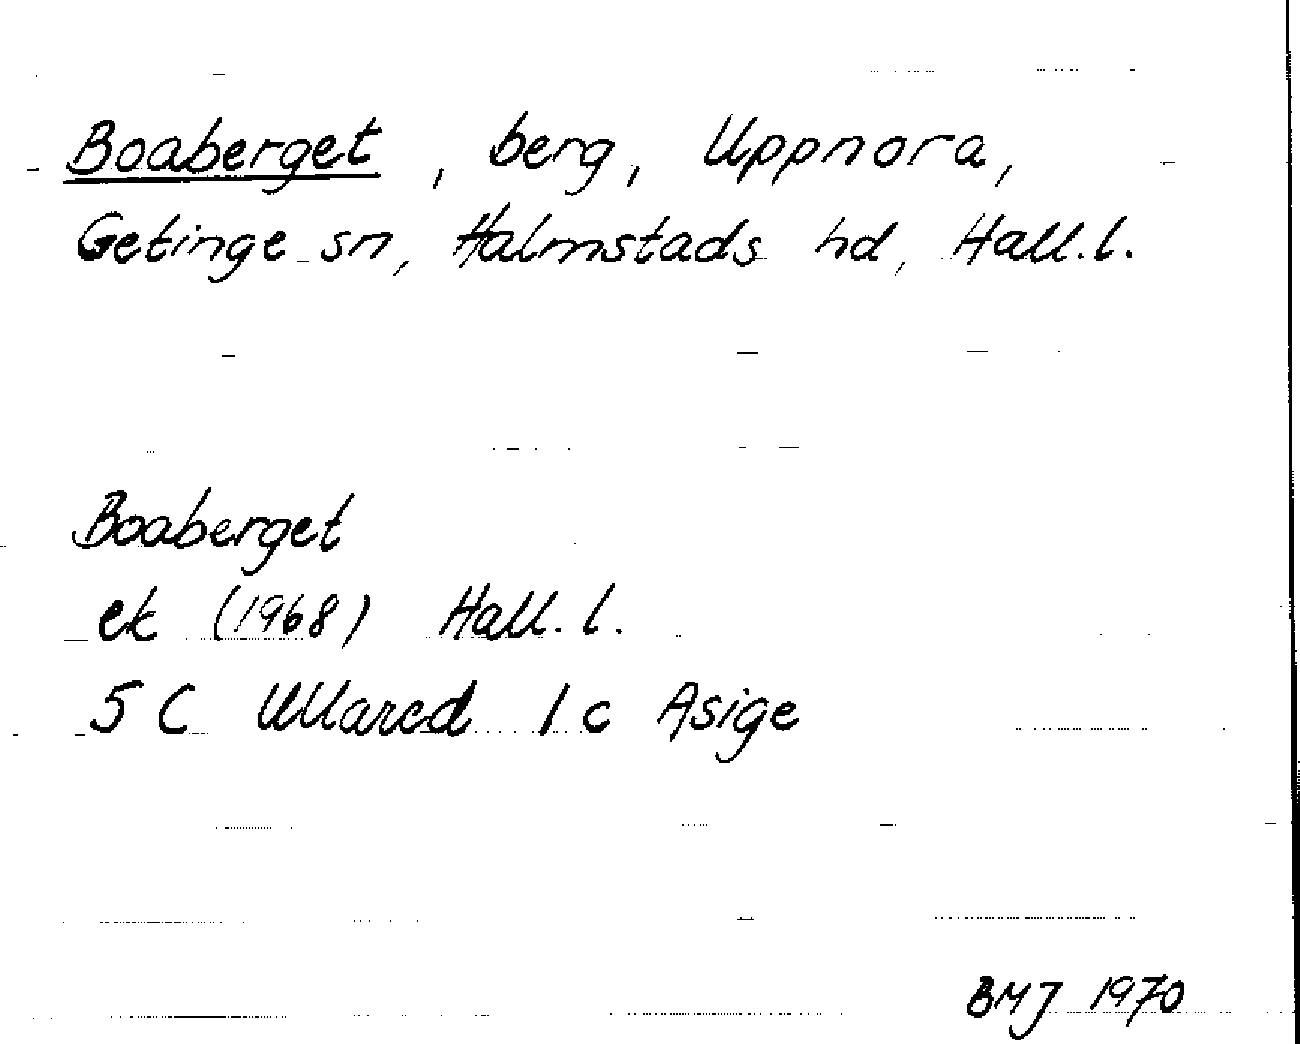 Boaberget, berg, Uppnora,
Getinge sn, Halmstads hd, Hall.l.
Boaberget
ek (1968) Hall.l.
5 C Ullared 1 c Asige
BMJ 1970